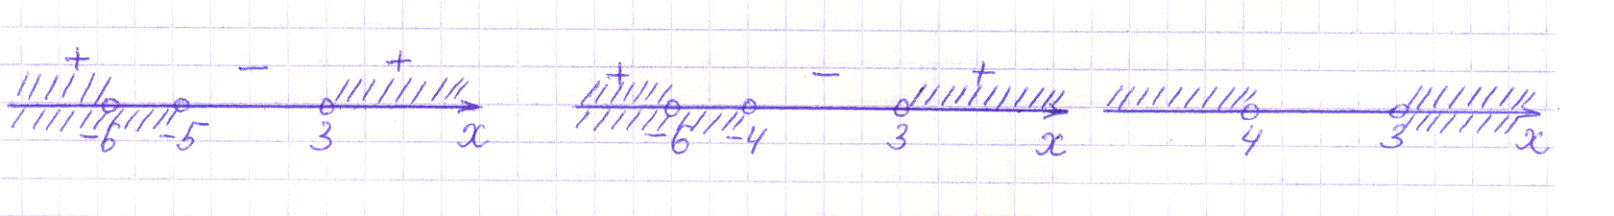 + − + + − +
−6 −5 3 x −6 −4 3 x 4 3 x